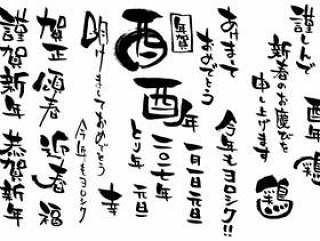 謹んで
新春のお慶びを
申し上げます
酉年
鶏
あけまして
おめでとう
今年もヨロシク!!
年賀
酉
酉年
一月一日元旦
二〇一七年
とり年 元旦
明けましておめでとう
今年もヨロシク
幸
賀正 頌春 迎春 福
謹賀新年 恭賀新年